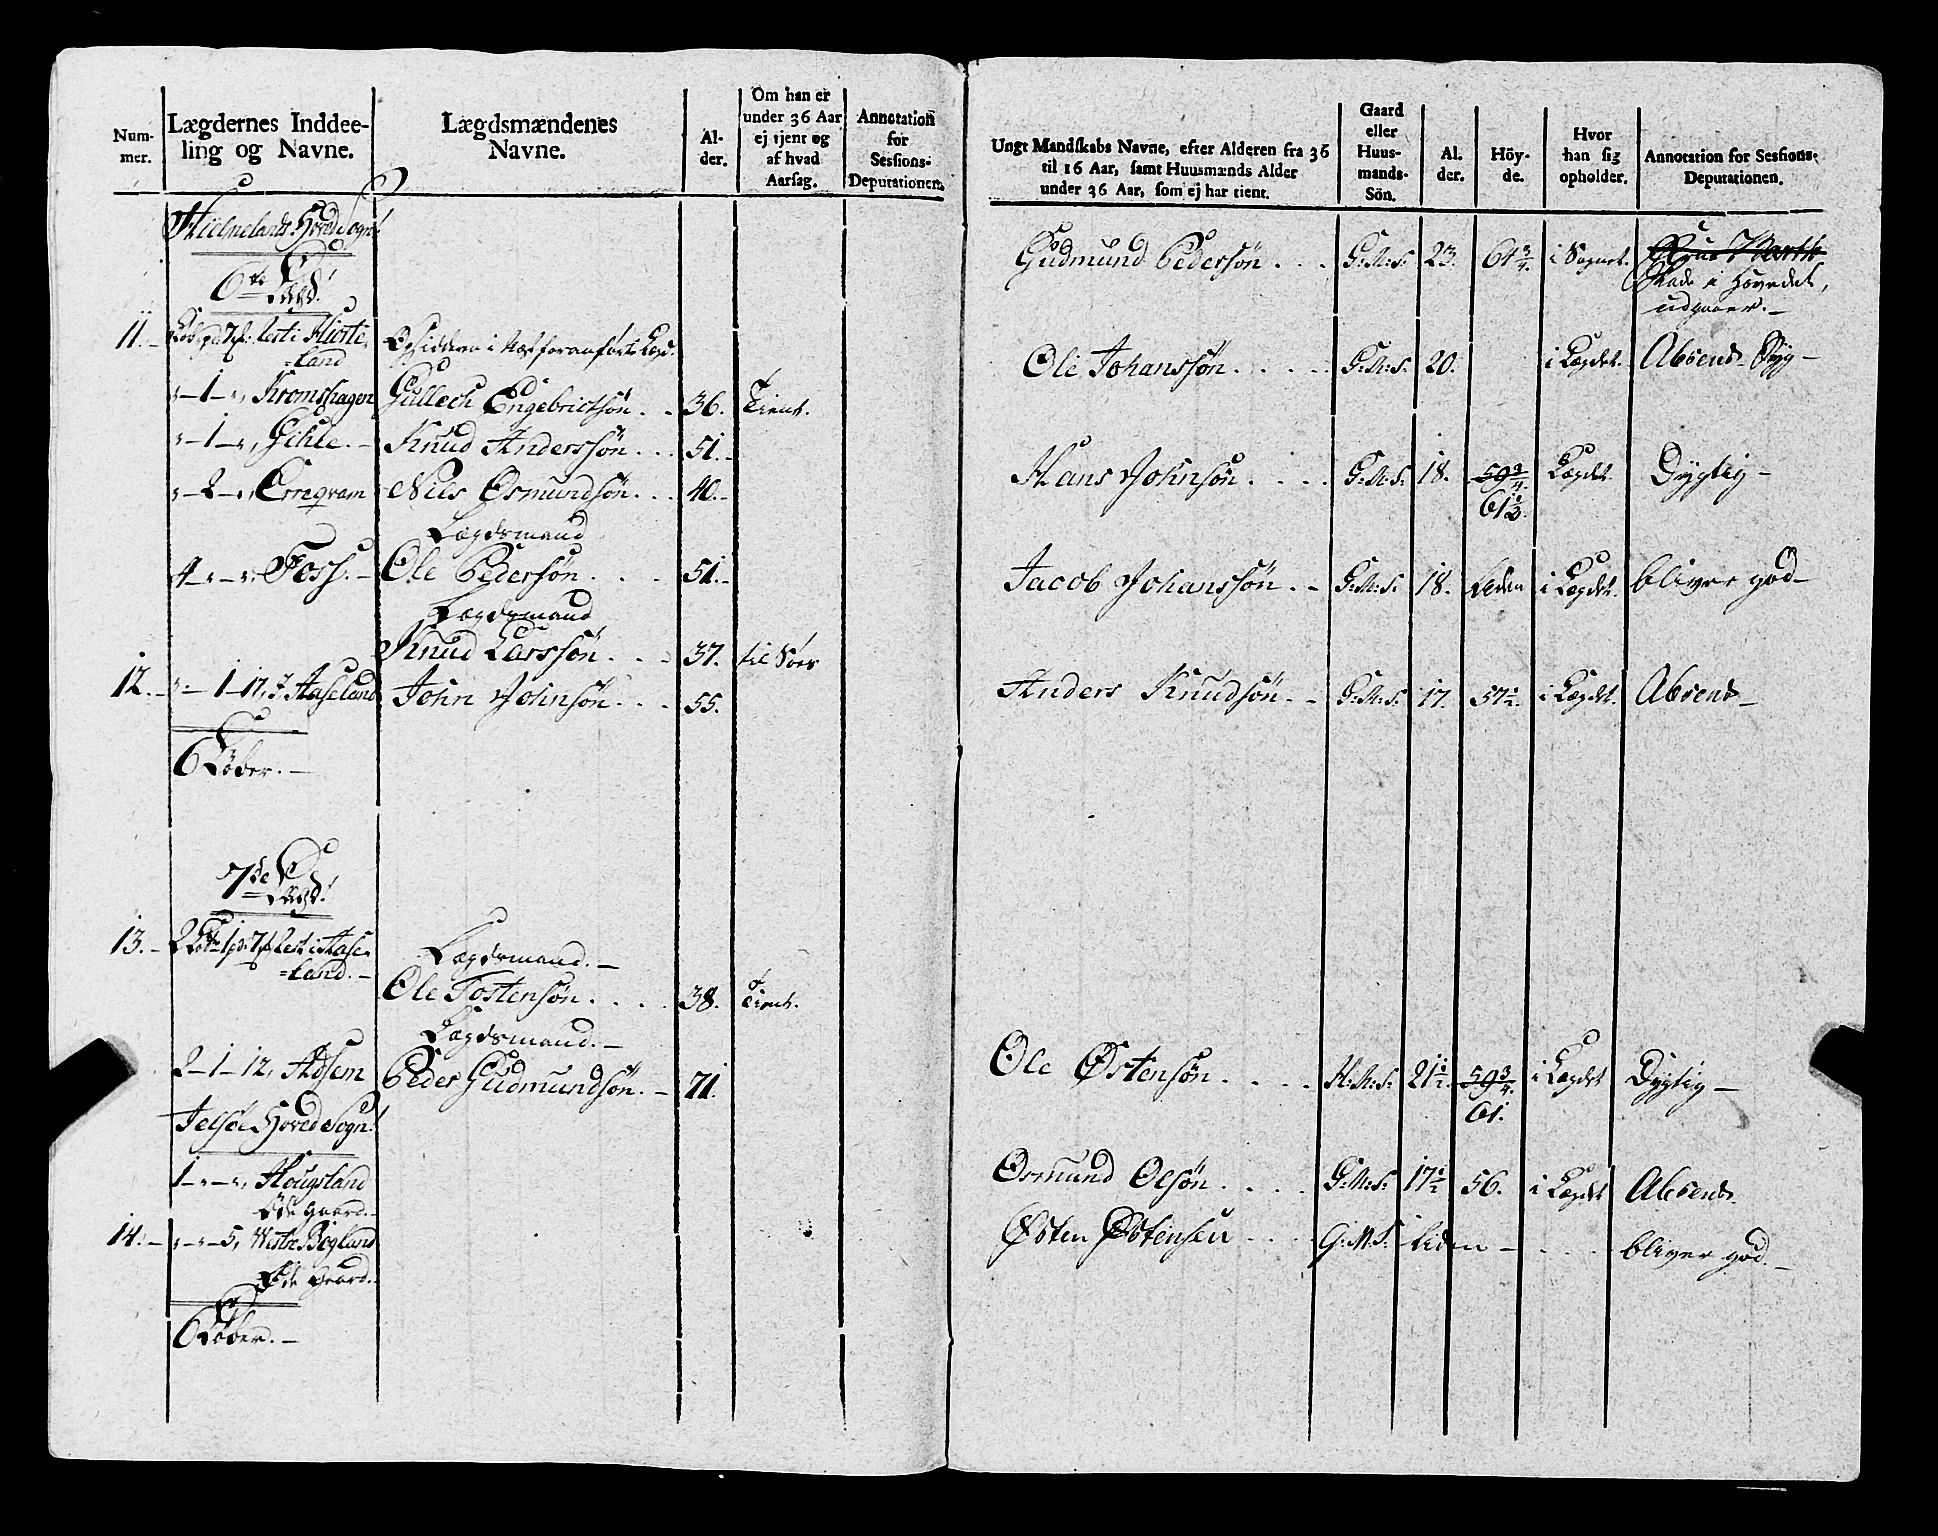 Num-
mer.
Lægdernes Inddee-
ling og Navne.
Lægdsmændenes
Navne.
Al-
der.
Om han er
under 36 Aar
ej tient og
af hvad
Aarsag.
Annotation
for
Sessions-
Deputationen.
Hielmelands Hoved Sogn!
6te Lægd!
11.- Løb pd 7 rest i Hiorte-
=land Opsiddern i næst foranførte Lægd.
"-1-", Kromshagen Gullech Engebrictsøn. . . 36. Tient.
"-1-", Gihle.- Knud Anderssøn. . . 51.-
"-2-", Erreqvam Niels Osmundsøn. . . 40.-
Lægdsmand
4-"-", Foss.- Ole Pedersøn. . . 51.-
Lægdsmand
Knud Larssøn. . . 37. til Søes
12.- "-1-17, Aaseland John Johnsøn. . . 55.
6 Løber.-
7de Lægd!
13.- 2 Løb 1 pd 7 rest i Aase-
=land.- Lægdsmand.-
Ole Tostensøn. . . . 38. Tient.
Lægdsmand.-
2-1-12, Adsem Peder Gudmundsøn.- 71.
Jelsøe Hoved Sogn!
1-"-", Hougsland
Øde Gaard.-
14.- "-"-5, Westre Bogland
Øde Gaard.-
6 Løber.-
Ungt Mandskabs Navne, efter Alderen fra 36
til 16 Aar, samt Huusmænds Alder
under 36 Aar, som ej har tient.
Gaard
eller
Huus-
mands-
Sön.
Al.
der.
Höy-
de.
Hvor
han sig
opholder.
Annotation for Sessions-
Deputationen.
Gudmund Pedersøn . . . G:M:S: 23. 64 3/4. i Sognet.
Skade i Hovedet,
udgaaer.-
Ole Johanssøn . . . . . G:M:S: 20. i Lægdet. Absend Syg-
Hans Johnsøn . . . . G:M:S: 18. 59 3/4. Lægdet. Dygtig-
61 1/2.
Jacob Johanssøn . - G:M:S: 18. Liden i Lægdet. bliver god-
Anders Knudsøn . - G:M:S: 17. 57 1/2. i Lægdet. Absend-
Ole Østensøn . . . . H:M:S: 21 1/2. 59 3/4. i Lægdet Dygtig-
61.
Osmund Olsøn . . . . G:M:S: 17 1/2 56. i Lægdet Absend
Østen Østensen . . . . G:M:S: liden - . . . . bliver god.-